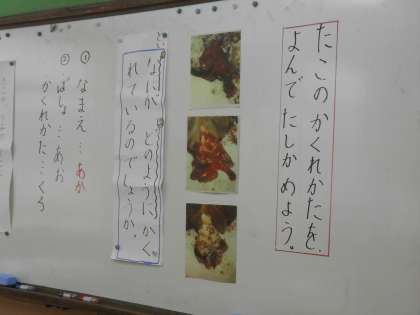 たこのかくれかたを、
よんでたしかめよう。
とい
なにが、どのようにかく
れているのでしょうか。
① なまえ…あか
② ばしょ…あお
かくれかた…くろ